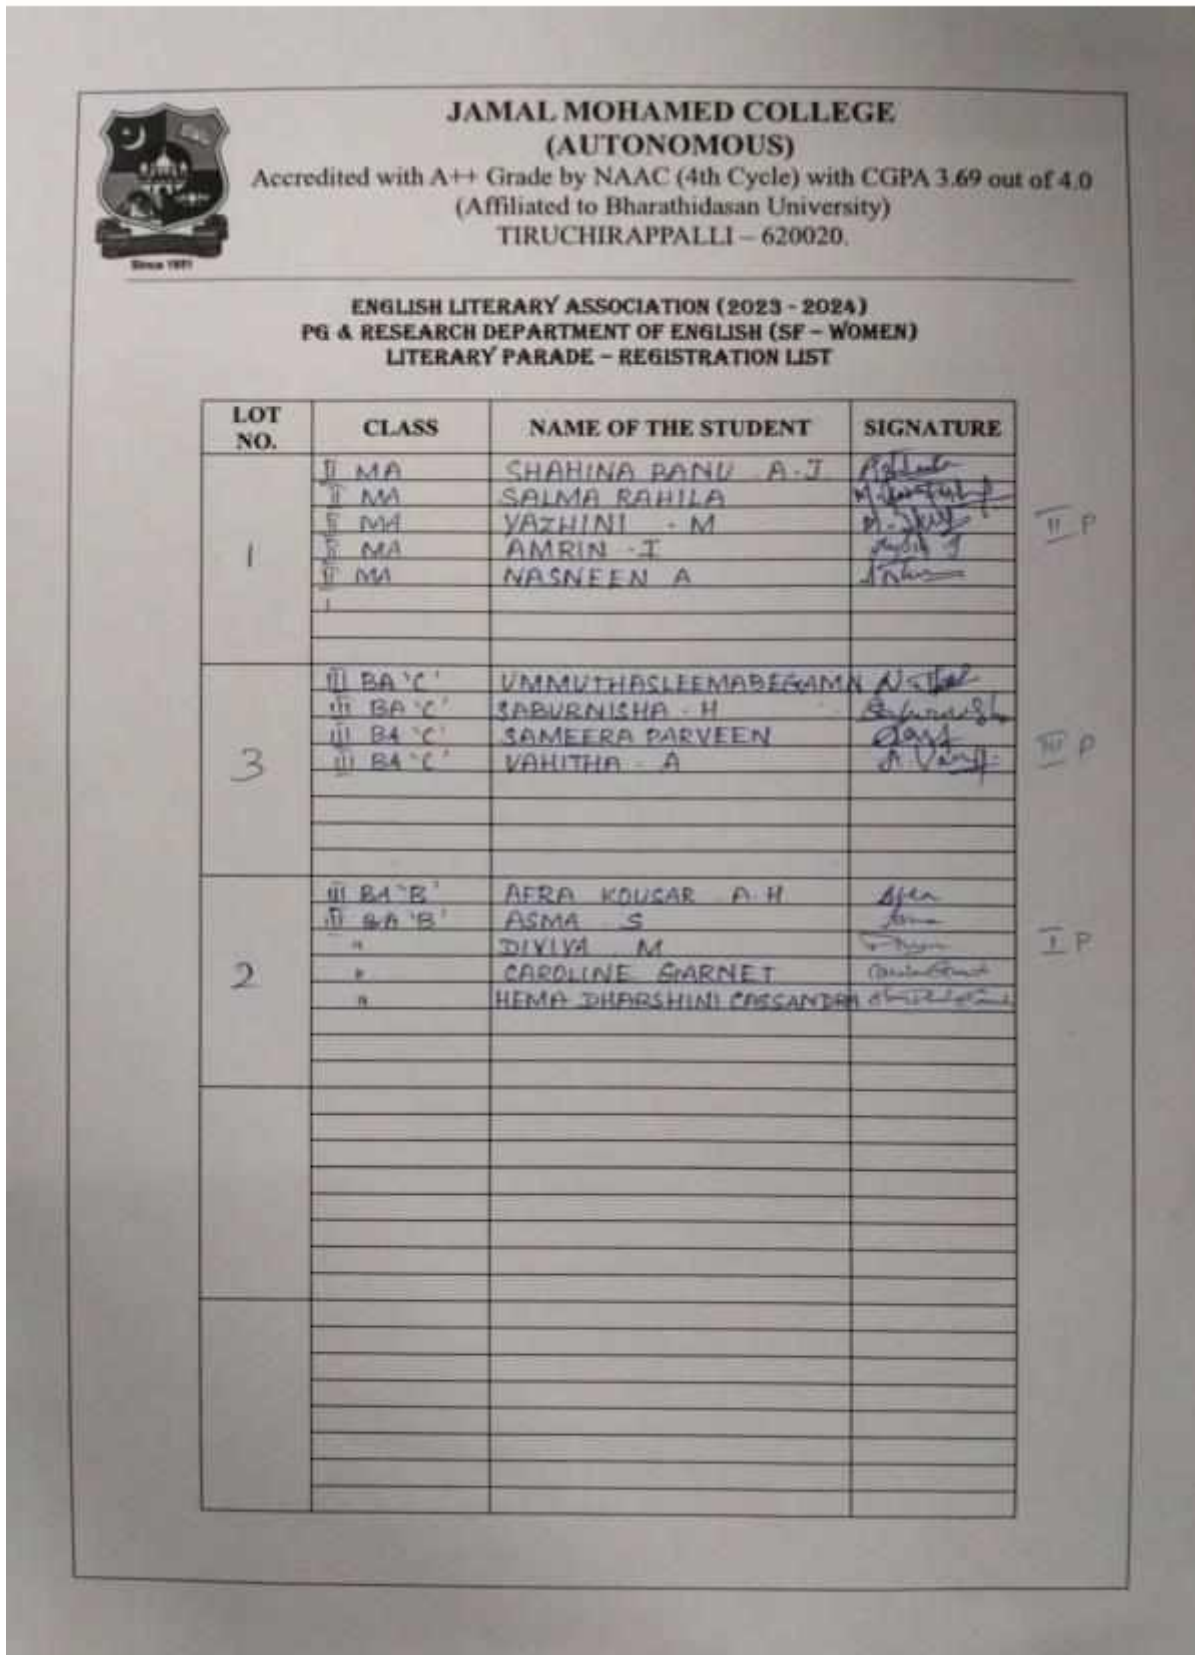 JAMAL MOHAMED COLLEGE
(AUTONOMOUS)
Accredited with A++ Grade by NAAC (4th Cycle) with CGPA 3.69 out of 4.0
(Affiliated to Bharathidasan University)
TIRUCHIRAPPALLI – 620020.
Since 1951
ENGLISH LITERARY ASSOCIATION (2023 - 2024)
PG & RESEARCH DEPARTMENT OF ENGLISH (SF – WOMEN)
LITERARY PARADE – REGISTRATION LIST
LOT NO. CLASS NAME OF THE STUDENT SIGNATURE
1
II MA SHAHINA BANU A.J
II MA SALMA RAHILA
II MA YAZHINI . M
II MA AMRIN . I
II MA NASNEEN A
II P
3
III BA 'C' UMMUTHASLEEMABEGAM N
III BA 'C' SABURNISHA . H
III BA 'C' SAMEERA PARVEEN
III BA 'C' VAHITHA . A
III P
2
III BA 'B' AFRA KOUSAR A.H
III BA 'B' ASMA S
" DIVIYA M
" CAROLINE GARNET
" HEMA DHARSHINI CASSANDRA
I P